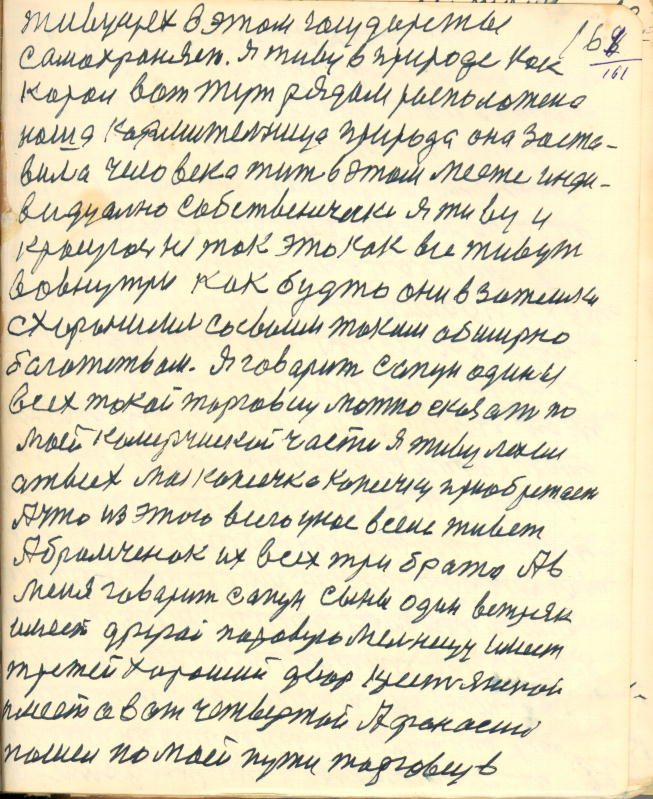 живущих в этом государстве 168
самохраняет. Я живу в природе как 161
корол вот тут рядом расположена
наша кормительница природа она заста-
вила человека жит в этом месте инди-
видуално собственически я живу и
красуюся не так это как все живут
вовнутри как будто они в
схоронили со своим таким обширно
богатством. Я говарит сапун один и
всех такой торговец можно сказат по
моей комерческой части я живу
от всех моя копеечка копечку приобретает
А что из этого всего
Абрамченок их всех три брата Ав
меня говарит сапун сыны один ветряк
имеет другой паровую мелницу имеет
третей хороший двор крестьянской
имеет а вот четвертой Афонасий
пошел по моей пути торговец в